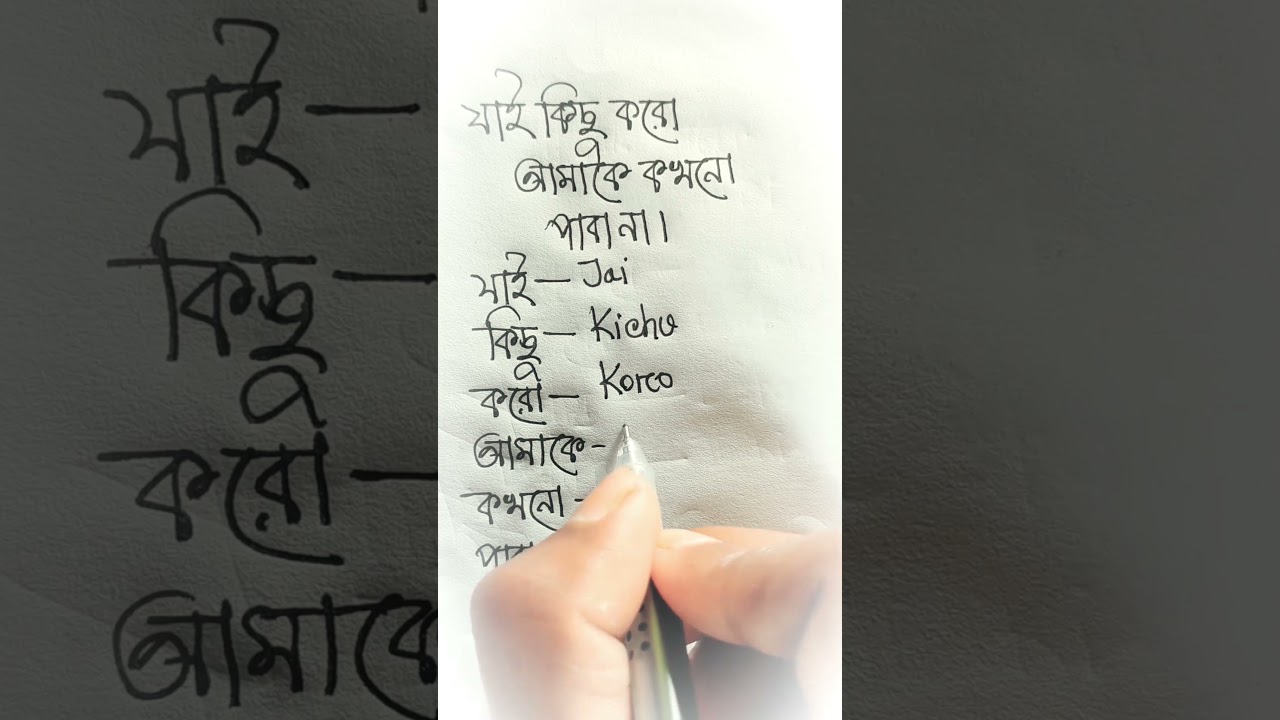 যাই কিছু করো
আমাকে কখনো
পাবা না।
যাই — Jai
কিছু — Kichu
করো — Koro
আমাকে -
কখনো -